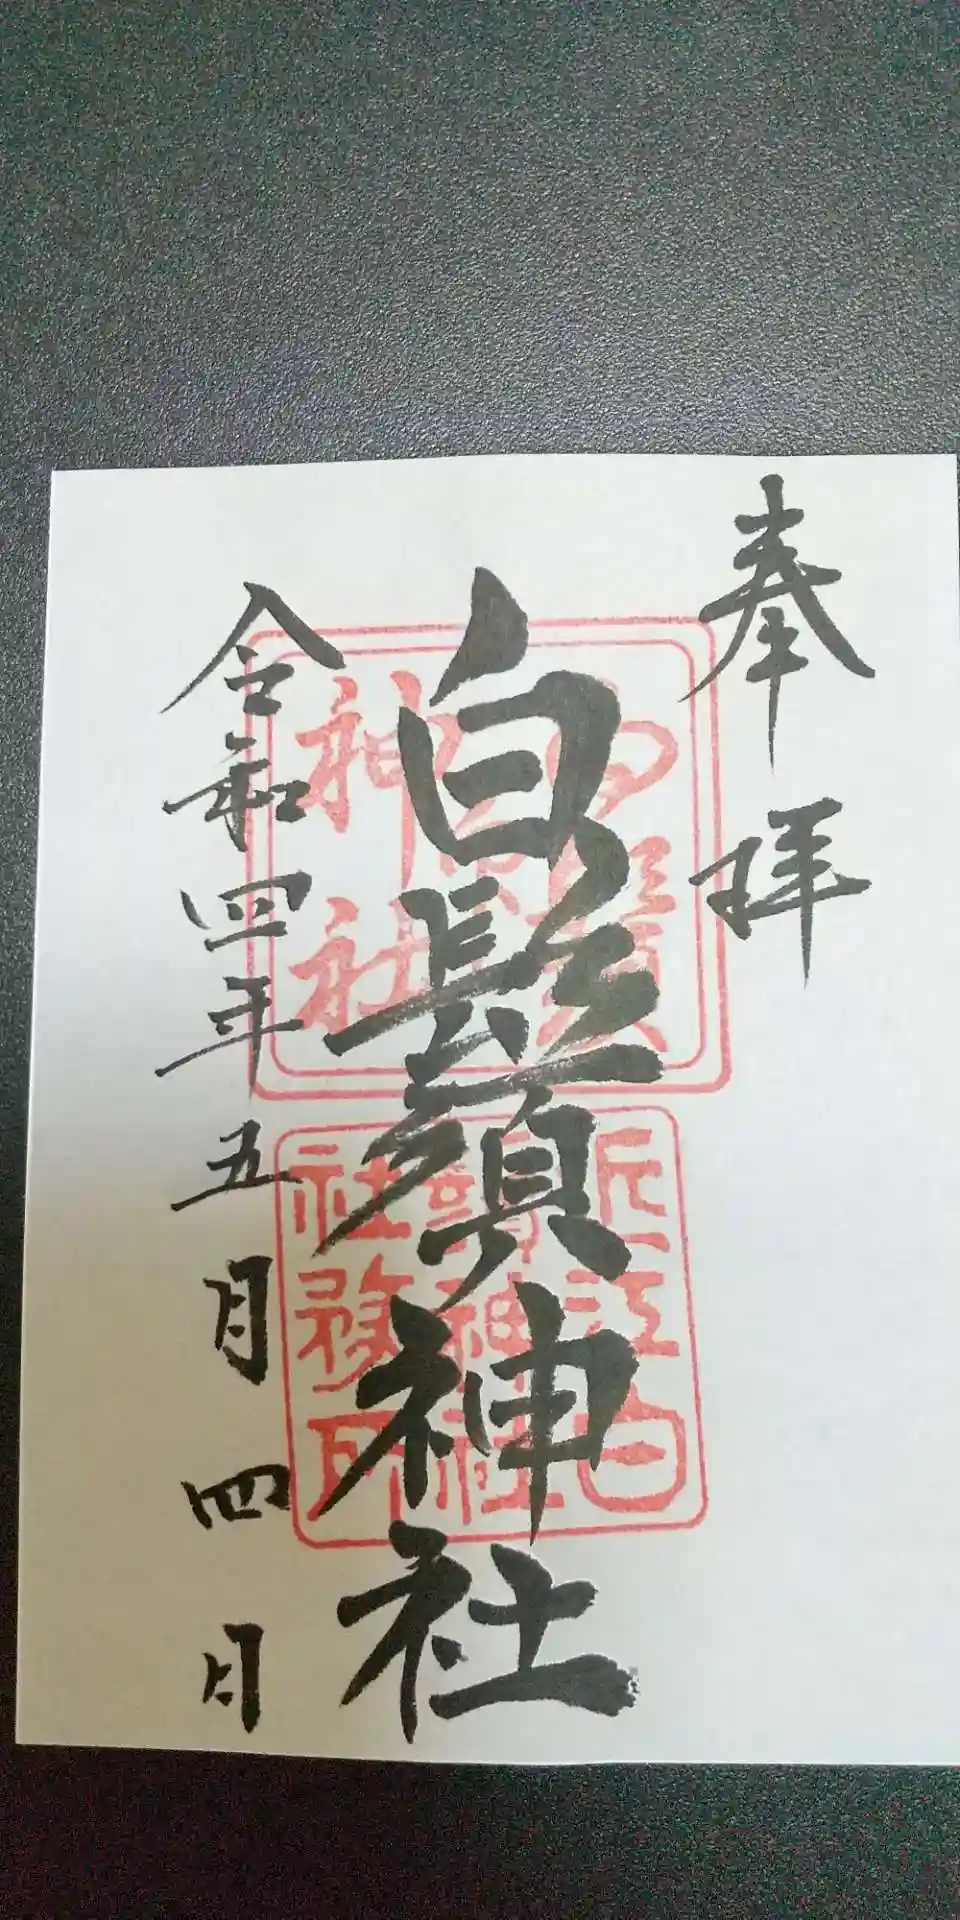 奉拝
白鬚神社
令和四年五月四日
白鬚
神社
近江白
鬚神社
社務所